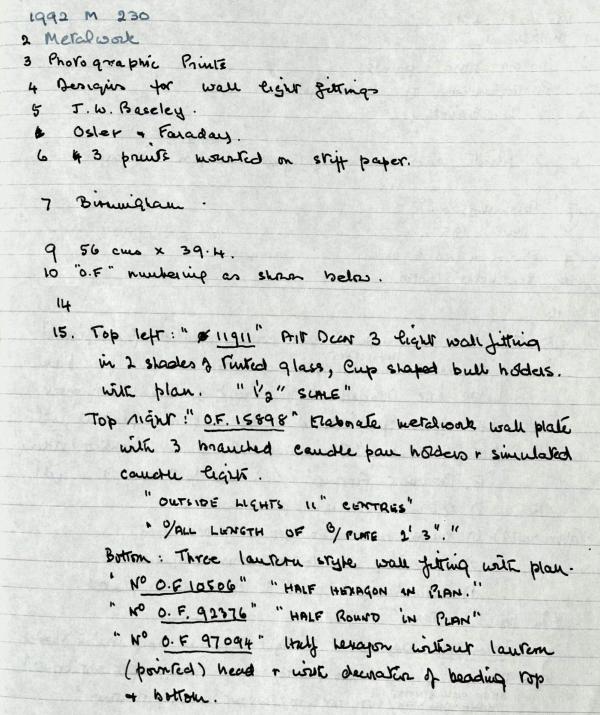 1992 M 230
2 Metalwork
3 Photographic Prints
4 Designs for wall light fittings
5 J.W. Baseley.
Osler & Faraday.
6 3 prints mounted on stiff paper.
7 Birmingham.
9 56 cms x 39.4.
10 "O.F" numbering as shown below.
14
15. Top left: " 11911" Art Deco 3 light wall fitting
in 2 shades of Tinted glass, Cup shaped bulb holders.
with plan. "1½" SCALE"
Top right: "O.F. 15898" Elaborate metalwork wall plate
with 3 branched candle pan holders & simulated
candle light.
"OUTSIDE LIGHTS 11" CENTRES"
"O/ALL LENGTH OF B/PLATE 2' 3"."
Bottom: Three lantern style wall fitting with plan.
"No O.F 10506" "HALF HEXAGON IN PLAN."
"No O.F. 92376" "HALF ROUND IN PLAN"
"No O.F 97094" Half hexagon without lantern
(pointed) head & with decoration of beading top
& bottom.